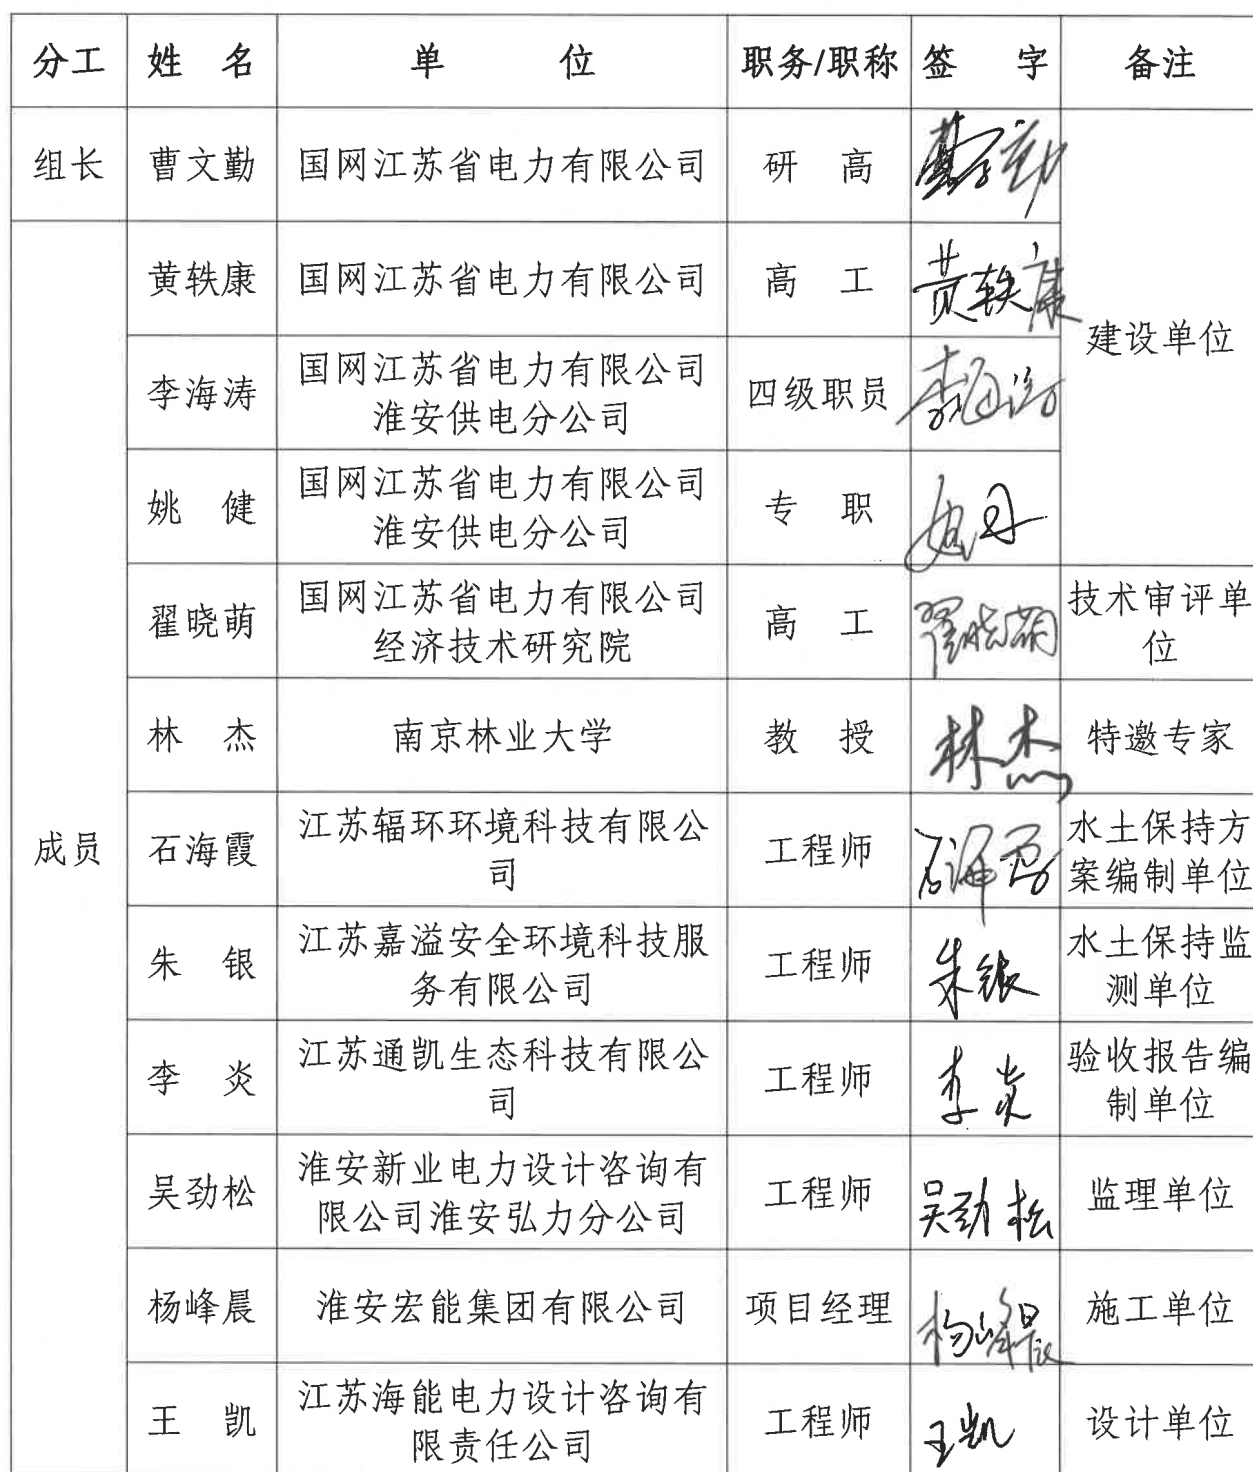 分工 姓 名 单 位 职务/职称 签 字 备注
组长 曹文勤 国网江苏省电力有限公司 研 高
黄轶康 国网江苏省电力有限公司 高 工 黄轶康
建设单位
李海涛 国网江苏省电力有限公司
淮安供电分公司 四级职员 李海涛
姚 健 国网江苏省电力有限公司
淮安供电分公司 专 职
翟晓萌 国网江苏省电力有限公司
经济技术研究院 高 工 翟晓萌 技术审评单
位
林 杰 南京林业大学 教 授 林杰 特邀专家
成员
石海霞 江苏辐环环境科技有限公
司 工程师 石海霞 水土保持方
案编制单位
朱 银 江苏嘉溢安全环境科技服
务有限公司 工程师 朱银 水土保持监
测单位
李 炎 江苏通凯生态科技有限公
司 工程师 李炎 验收报告编
制单位
吴劲松 淮安新业电力设计咨询有
限公司淮安弘力分公司 工程师 吴劲松 监理单位
杨峰晨 淮安宏能集团有限公司 项目经理 杨峰晨 施工单位
王 凯 江苏海能电力设计咨询有
限责任公司 工程师 王凯 设计单位